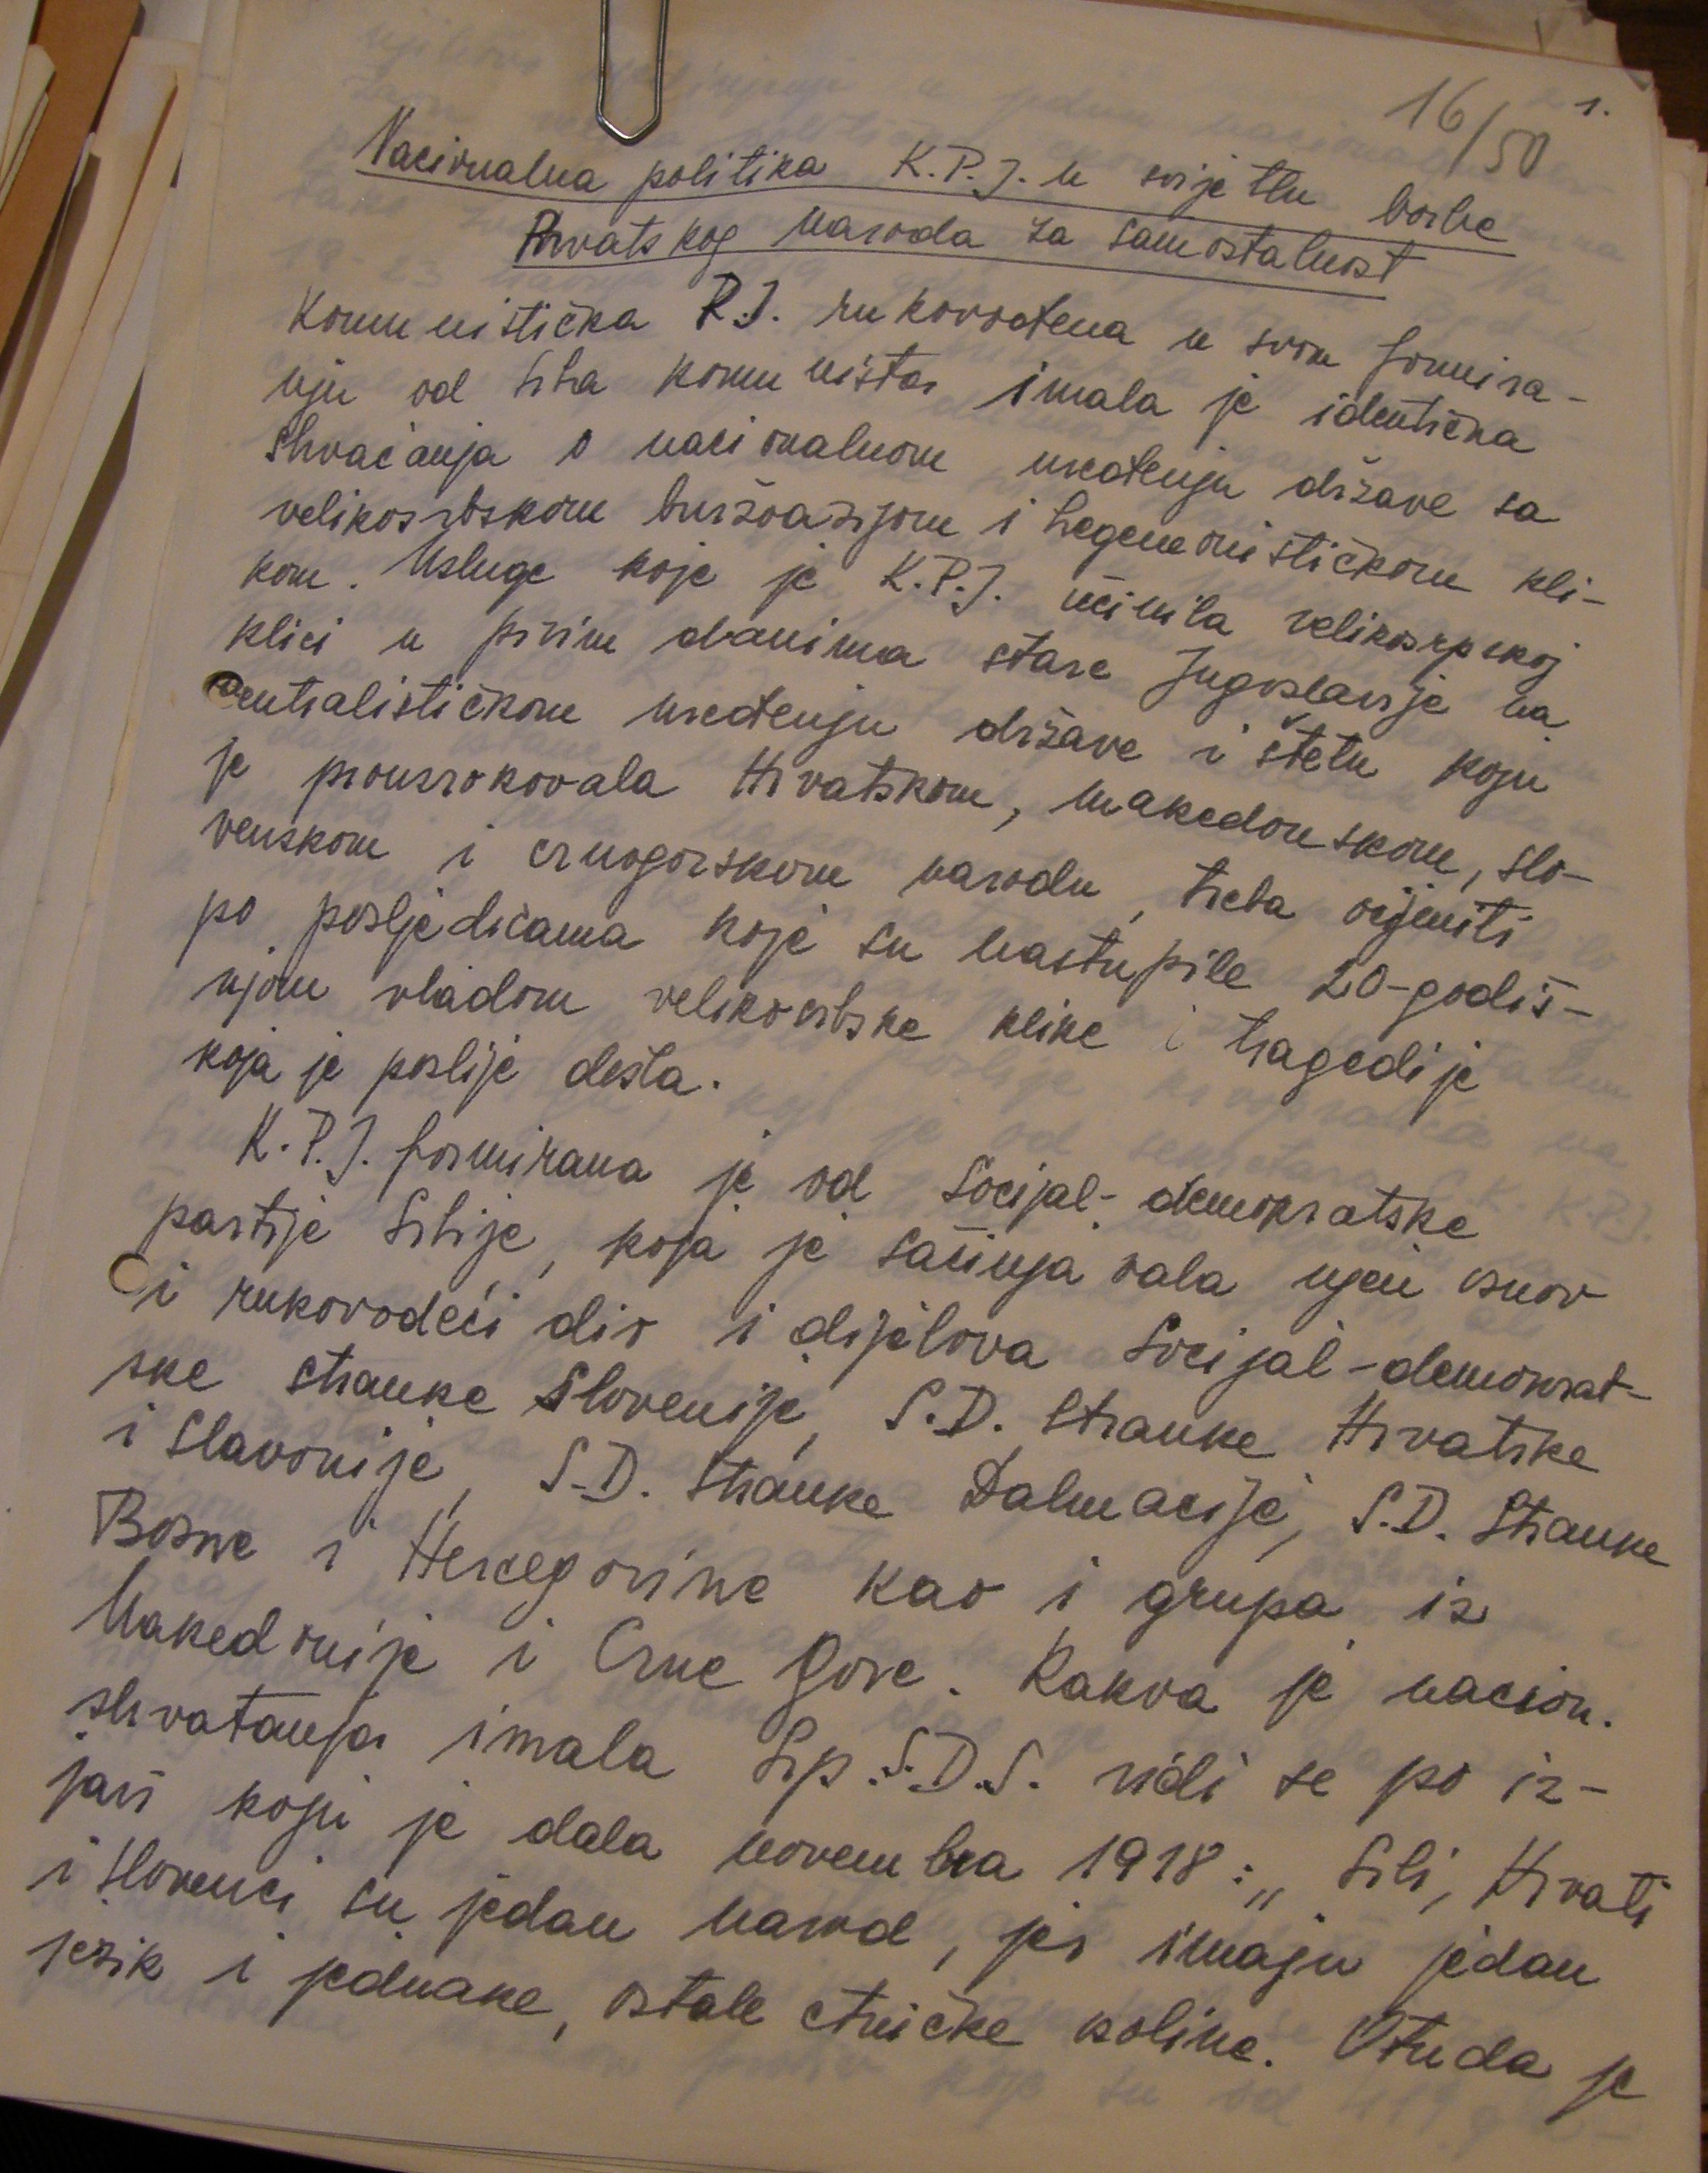 16/50
1.
Nacionalna politika K.P.J. u svijetlu borbe
Hrvatskog naroda za samostalnost
Komunistička P.J. rukovođena u svom formira-
nju od Srba komunista imala je identična
shvaćanja o nacionalnom uređenju države sa
velikosrbskom buržoazijom i hegemonističkom kli-
kom. Usluge koje je K.P.J. učinila velikosrpskoj
klici u prvim danima stare Jugoslavije na
centralističkom uređenju države i štetu koju
je prouzrokovala Hrvatskom, makedonskom, slo-
venskom i crnogorskom narodu, treba ocijeniti
po posljedicama koje su nastupile 20-godiš-
njom vladom velikosrbske klike i tragedije
koja je poslije došla.
K.P.J. formirana je od Socijal-demokratske
partije Srbije, koja je sačinjavala njen osnov
i rukovodeći dio i dijelova Socijal-demokrat-
ske stranke Slovenije, S.D. Stranke Hrvatske
i Slavonije, S.D. Stranke Dalmacije, S.D. Stranke
Bosne i Hercegovine kao i grupa iz
Makedonije i Crne Gore. Kakva je nacion.
shvatanja imala Srp.S.D.S. vidi se po iz-
javi koju je dala novembra 1918: „Srbi, Hrvati
i Slovenci su jedan narod, jer imaju jedan
jezik i jednake, ostale etničke osobine. Otuda je